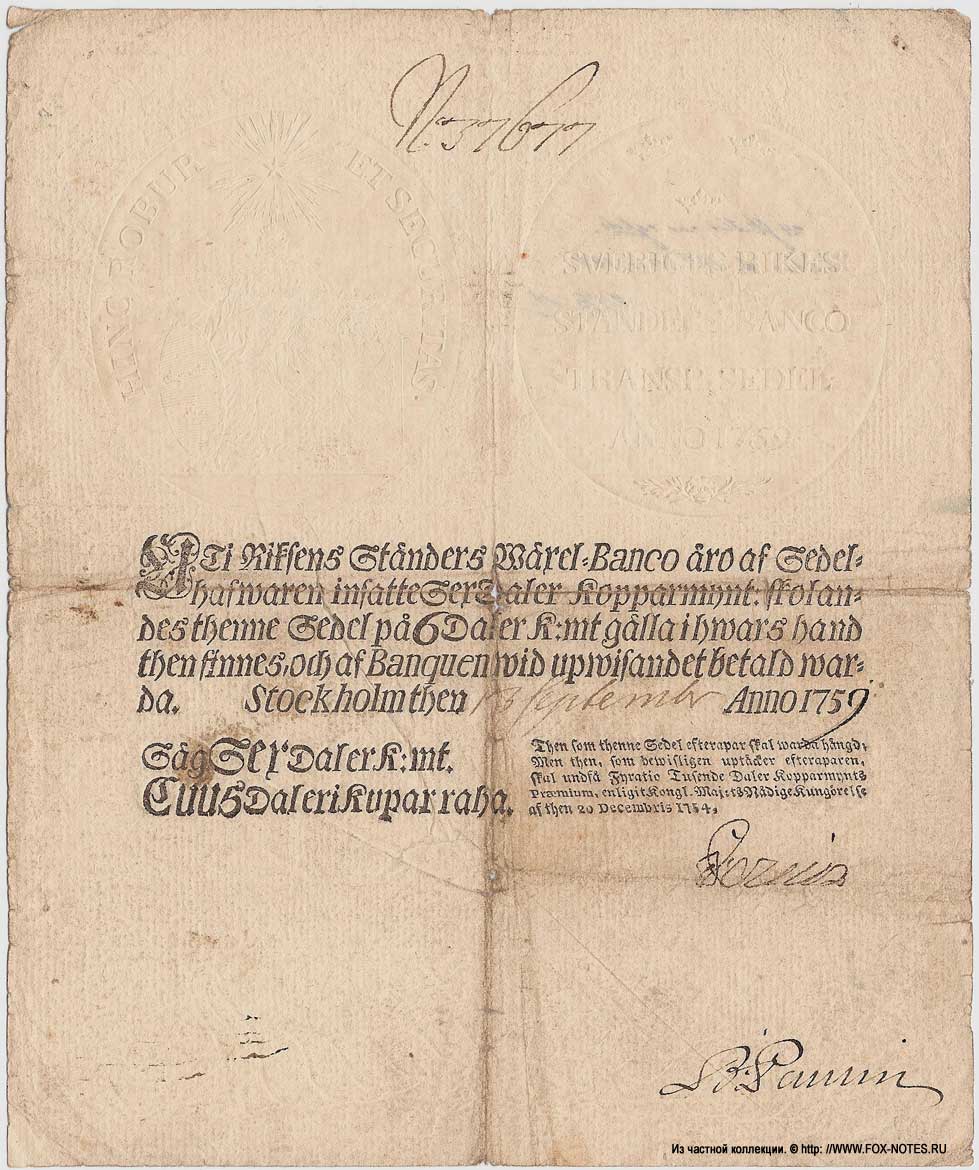 N:o 37677
HINC ROBUR ET SECURITAS
SVERIGES RIKES
STÄNDERS BANCO
TRANSP. SEDEL
ANNO 1759
UTi Riksens Ständers Wäxel-Banco äro af Sedel-
hafwaren insatte Sex Daler Kopparmynt: skolan-
des thenne Sedel på 6 Daler K:mt gälla i hwars hand
then finnes, och af Banquen wid upwisandet betald war-
da. Stockholm then 13 September Anno 1759
Säg Sex Daler K:mt.
Cuus Daleri Kupar raha.
Then som thenne Sedel efterapar skal warda hängd;
Men then, som bewisligen uptäcker efteraparen,
skal undfå Fyratio Tusende Daler Kopparmynts
Præmium, enligit Kongl. Maj:ts Nådige Kungörelse
af then 20 Decembris 1754.
Из частной коллекции. © http: //WWW.FOX-NOTES.RU